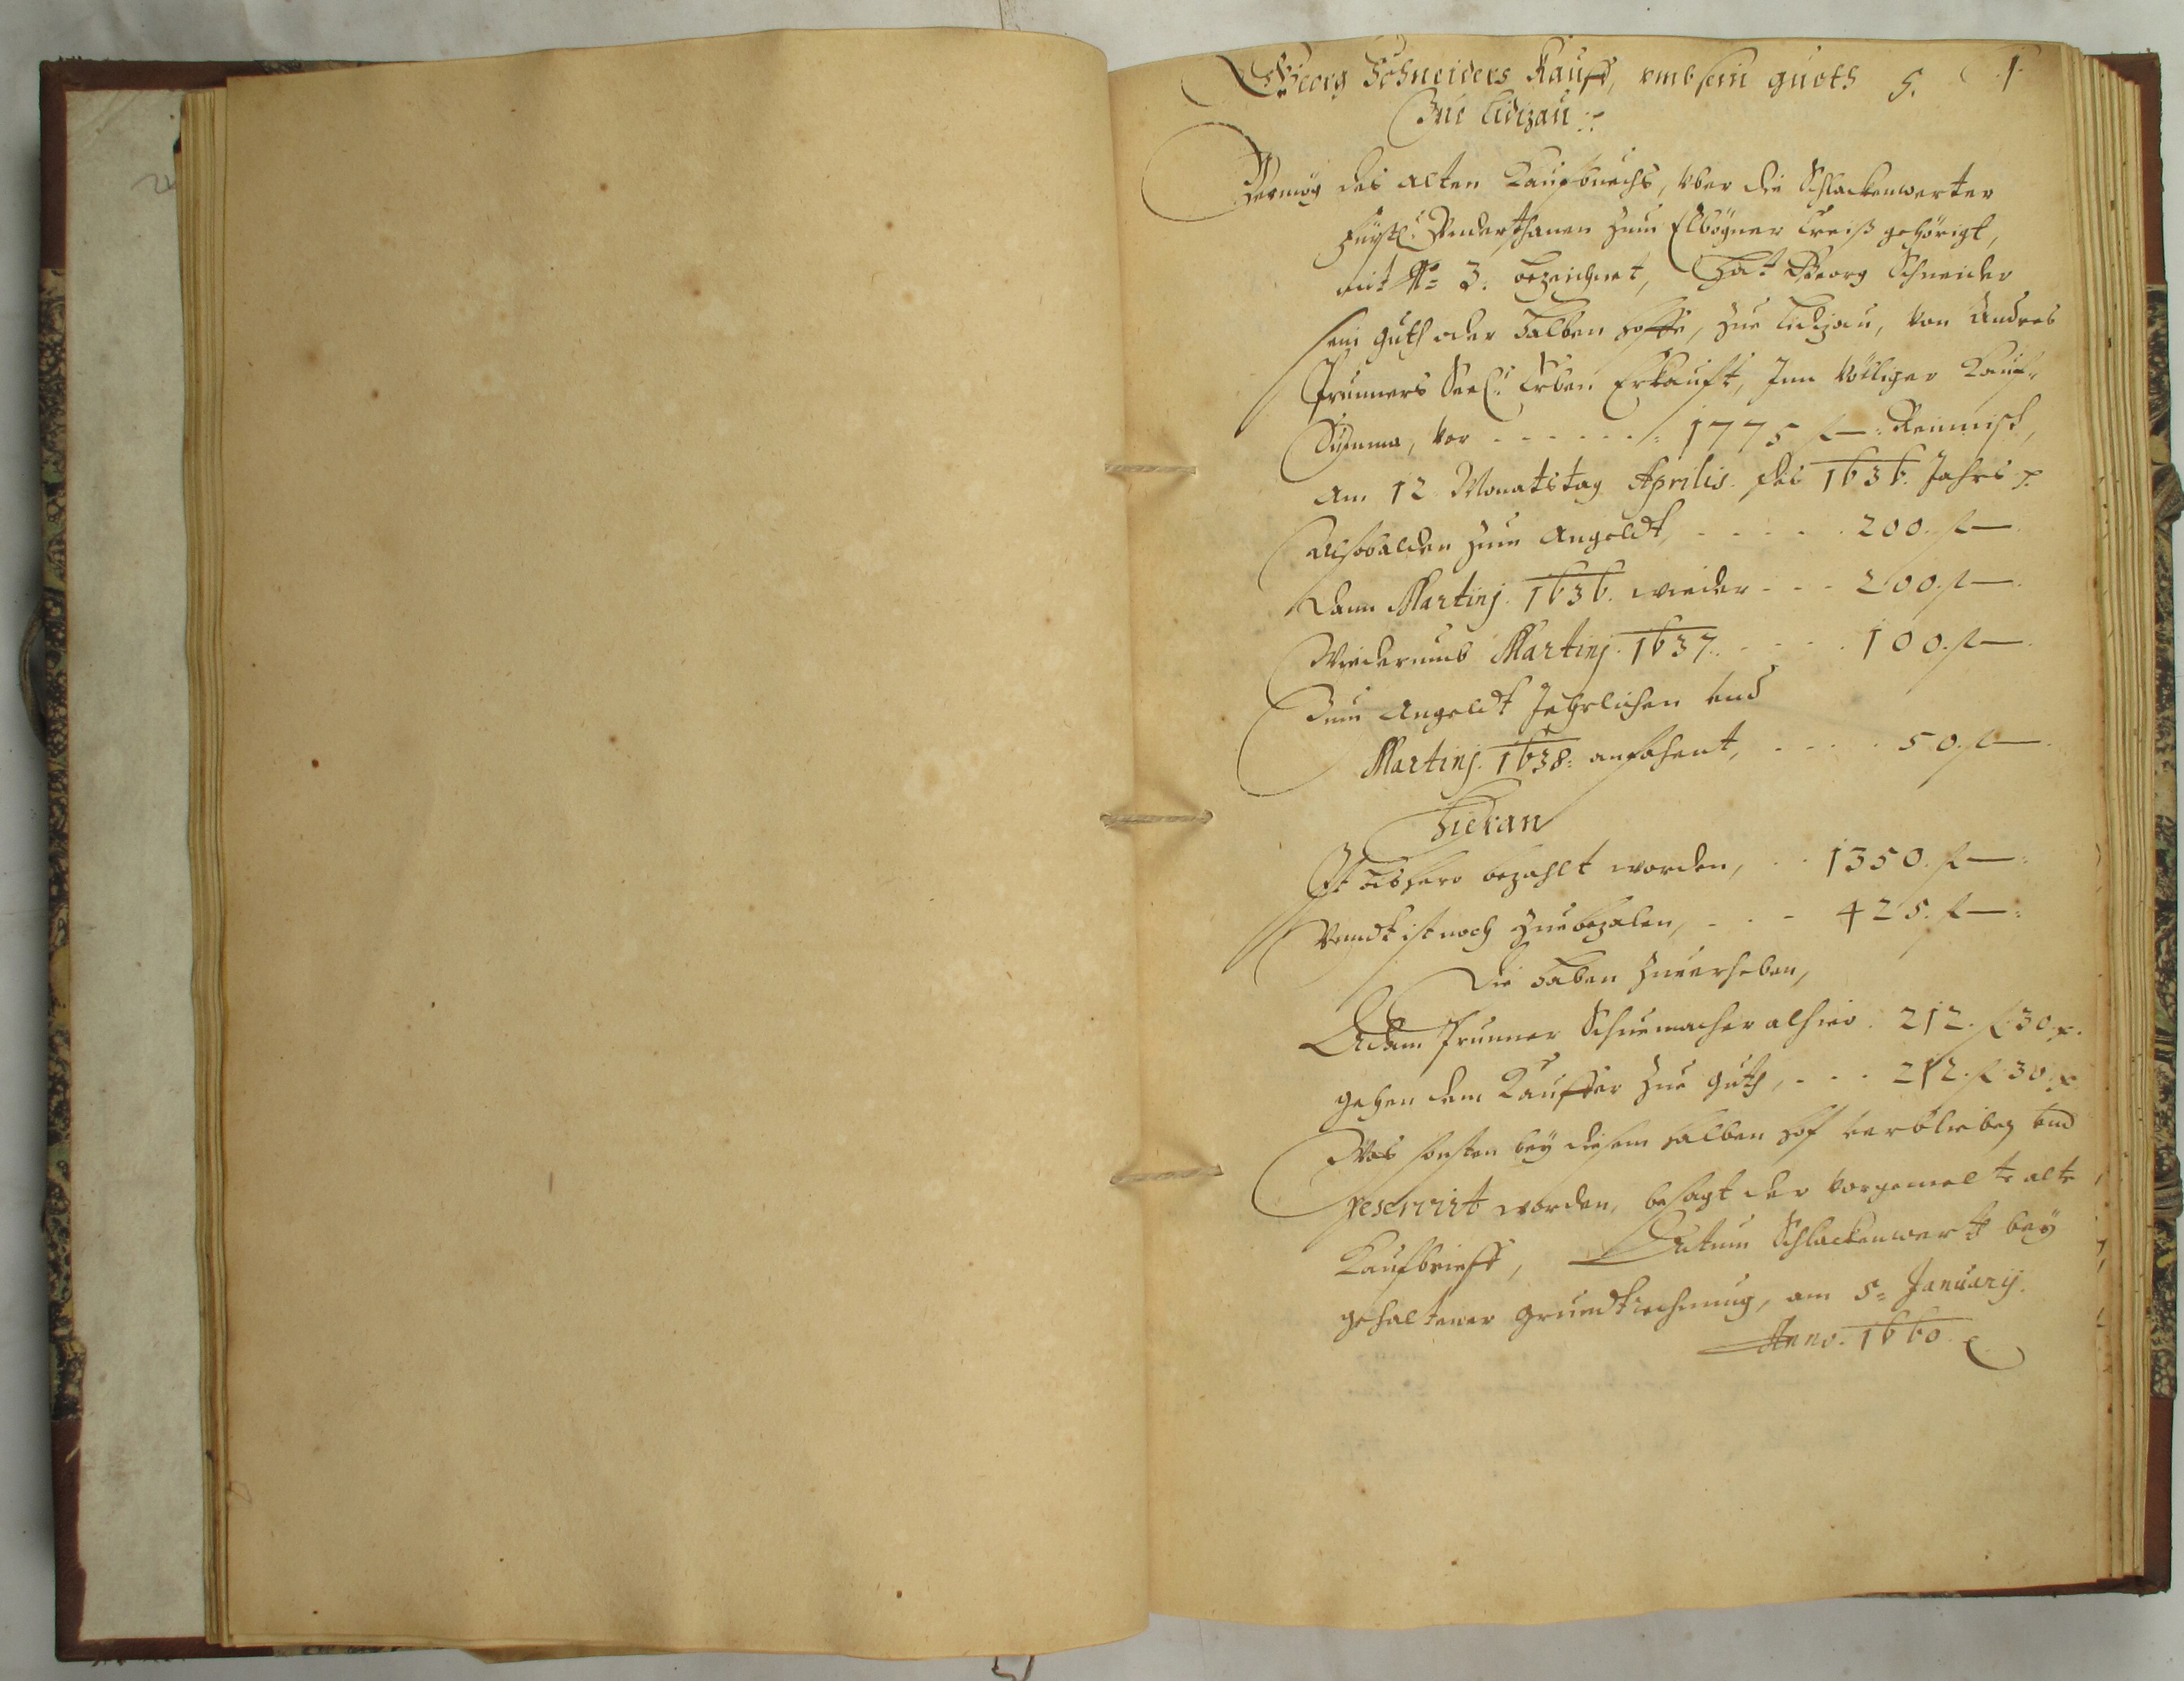 Georg Schneiders Kauff, vmb sein gueth 5. 1.
Zue Lidizau
Vermög des alten Kaufbuechs, über die Schlackenwerter
Fürstl: Vnderthanen zum Elbögner Creiß gehörigt,
mit No 3. bezeichnet, Hat Georg Schneider
sein guth oder halben hoffe, zue Lidizau, von Andres
Prunners Seel: Erben Erkauft, Inn völliger Kauf-
Summa, vor - - - - - - 1775 f —: Reinnisch,
am 12 Monatstag Aprilis. des 1636. Jahrs
Alsobalden zum Angeldt, - - - - - 200. f —
dann Martinj. 1636. wieder - - - 200. f —
Wiederumb Martinj. 1637. - - - - 100. f —
Zum Angeldt Jehrlichen vnd
Martinj. 1638: anfahent, - - - - 50. f —
Hieran
Ist bishero bezahlt worden, - - 1350. f —:
Vnndt ist noch zue bezalen, - - - 425. f —:
Die haben zue erheben,
Adam Prunner Schuemacher alhier. 212. f 30 x.
gehen dem Kauffer zue guth, - - - 212. f 30 x
Was sonsten bey diesem halben hof verblieben vnd
reservirt worden, besagt der vorgemelte alte
Kaufbrieff, Datum Schlackenwerth bey
gehaltener grundtrechnung, am 5= Januarij.
Anno. 1660